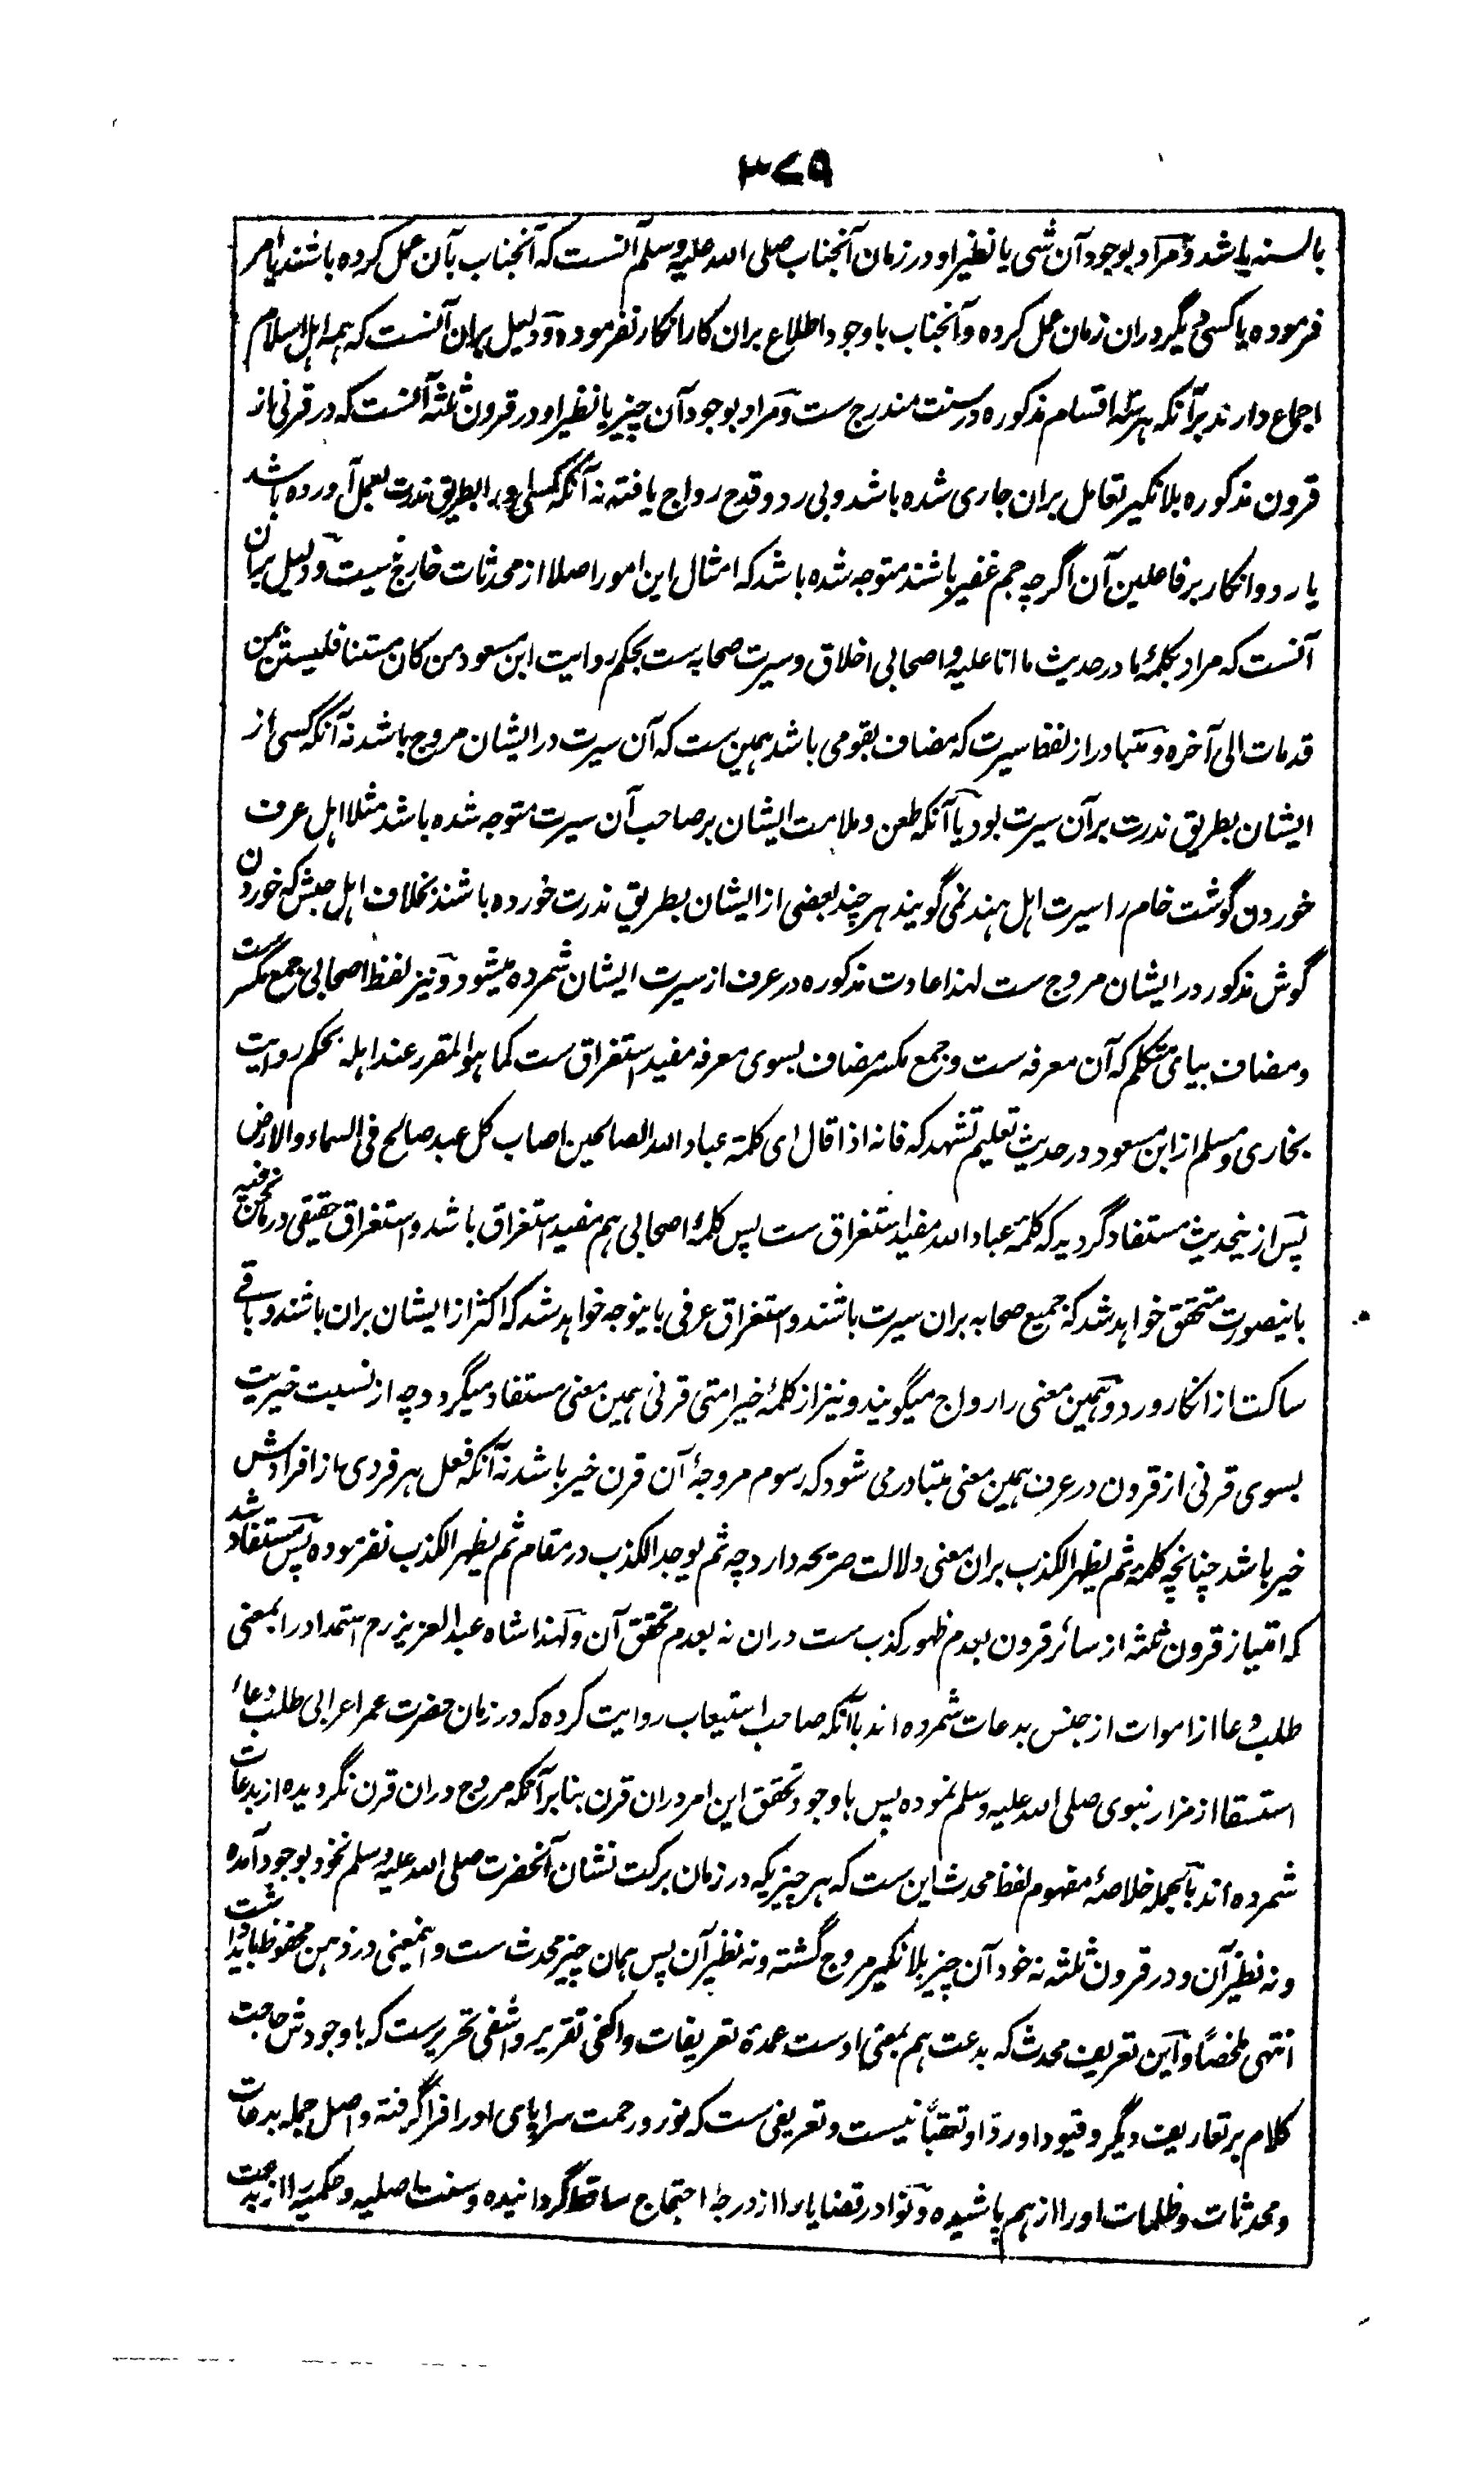 ۳۷۹
بالسنه باشد و مراد بوجود آن شی یا نظیر او در زمان آنجناب صلی الله علیه وسلم آنست که آنجناب بآن عمل کرده باشند یا امر
فرموده یا کسی دیگر دران زمان عمل کرده و آنجناب باوجود اطلاع بران کار انکار نفرموده و دلیل بران آنست که همه اهل اسلام
اجماع دارند برآنکه هر سه اقسام مذکوره در سنت مندرج ست و مراد بوجود آن چیز یا نظیر او در قرون ثلثه آنست که در قرنی از
قرون مذکوره بلا نکیر تعامل بران جاری شده باشد و بی رد و قدح رواج یافته نه آنکه کسی او را بطریق ندرت بعمل آورده باشد
یا رد و انکار بر فاعلین آن اگرچه جم غفیر باشند متوجه شده باشد که امثال این امور اصلا از محدثات خارج نیست و دلیل بران
آنست که مراد بکلمهٔ ما در حدیث ما انا علیه و اصحابی اخلاق و سیرت صحابه ست بحکم روایت ابن مسعود من کان مستنا فلیستن بمن
قدمات الی آخره و متبادر از لفظ سیرت که مضاف بقومی باشد همین ست که آن سیرت در ایشان مروج باشد نه آنکه کسی از
ایشان بطریق ندرت برآن سیرت بود یا آنکه طعن و ملامت ایشان بر صاحب آن سیرت متوجه شده باشد مثلا اهل عرف
خوردن گوشت خام را سیرت اهل هند نمی گویند هر چند بعضی از ایشان بطریق ندرت خورده باشند بخلاف اهل حبش که خوردن
گوش مذکور در ایشان مروج ست لهذا عادت مذکوره در عرف از سیرت ایشان شمرده میشود و نیز لفظ اصحابی جمع مکسر ست
و مضاف بیای متکلم که آن معرفه ست و جمع مکسر مضاف بسوی معرفه مفید استغراق ست کما هو المقرر عند اهله بحکم روایت
بخاری و مسلم از ابن مسعود در حدیث تعلیم تشهد که فانه اذا قال ای کلمة عباد الله الصالحین اصاب کل عبد صالح فی السماء والارض
پس ازینحدیث مستفاد گردید که کلمهٔ عباد الله مفید استغراق ست پس کلمهٔ اصحابی هم مفید استغراق باشد و استغراق حقیقی در مانحن فیه
باینصورت متحقق خواهد شد که جمیع صحابه بران سیرت باشند و استغراق عرفی باینوجه خواهد شد که اکثر از ایشان بران باشند و باقے
ساکت از انکار و رد و همین معنی را رواج میگویند و نیز از کلمهٔ خیر امتی قرنی همین معنی مستفاد میگردد چه از نسبت خیریت
بسوی قرنی از قرون در عرف همین معنی متبادر می شود که رسوم مروجهٔ آن قرن خیر باشد نه آنکه فعل هر فردی از افرادش
خیر باشد چنانچه کلمهٔ ثم یظهر الکذب بران معنی دلالت صریحه دارد چه ثم یوجد الکذب در مقام ثم یظهر الکذب نفرموده پس مستفاد شد
که امتیاز قرون ثلثه از سائر قرون بعدم ظهور کذب ست دران نه بعدم تحقق آن و لهذا شاه عبد العزیز رح استمداد را بمعنی
طلب دعا از اموات از جنس بدعات شمرده اند باآنکه صاحب استیعاب روایت کرده که در زمان حضرت عمر اعرابی طلب دعاء
استسقا از مزار نبوی صلی الله علیه وسلم نموده پس باوجود تحقق این امر دران قرن بنا برآنکه مروج دران قرن نگردیده از بدعات
شمرده اند بالجمله خلاصهٔ مفهوم لفظ محدث این ست که هر چیزیکه در زمان برکت نشان آنحضرت صلی الله علیه وسلم نخود بوجود آمده
و نه نظیر آن و در قرون ثلثه نه خود آن چیز بلا نکیر مروج گشته و نه نظیر آن پس همان چیز محدث ست و اینمعنی در ذهن محفوظ باید داشت
انتهی ملخصاً و این تعریف محدث که بدعت هم بمعنی اوست عمدهٔ تعریفات و اکفی تقریر و اشفی تحریرست که باوجودش حاجت
کلام بر تعاریف دیگر و قیود او رداً و تعقباً نیست و تعریفی ست که نور و رحمت سراپای او را فراگرفته و اصل جمله بدعات
و محدثات و ظلمات او را از هم پاشیده و نوادر قضایا را از درجهٔ احتجاج ساقط گردانیده و سنت اصلیه و حکمیه را از بدعت